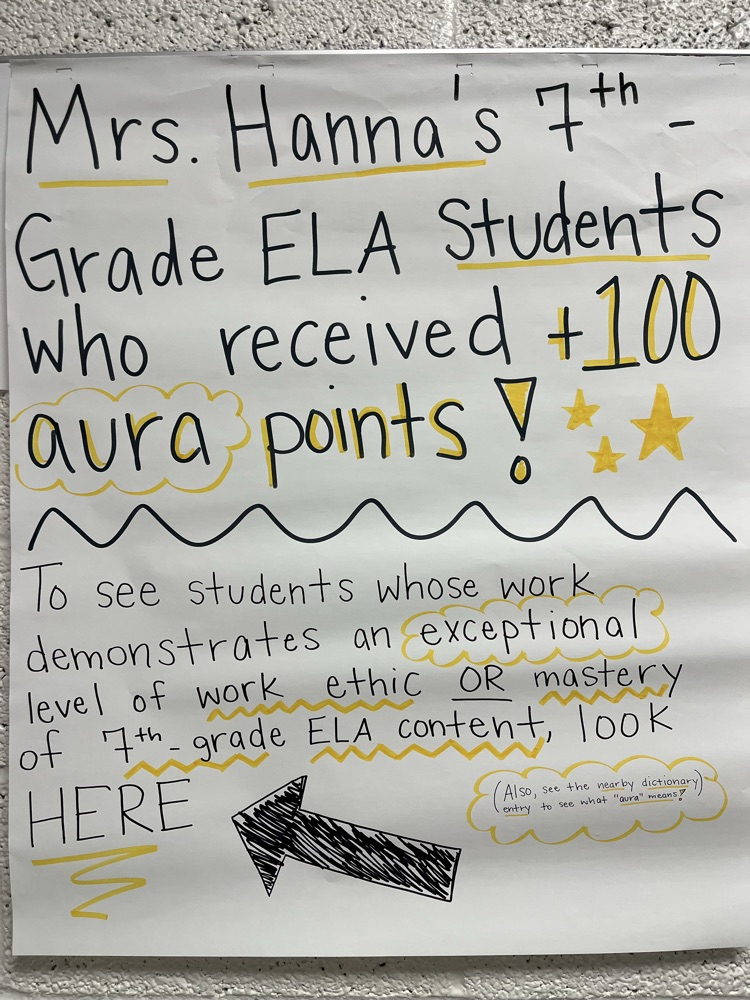 Mrs. Hanna's 7th -
Grade ELA Students
who received +100
aura points!
To see students whose work
demonstrates an exceptional
level of work ethic OR mastery
of 7th-grade ELA content, look
HERE
(Also, see the nearby dictionary)
entry to see what "aura" means!